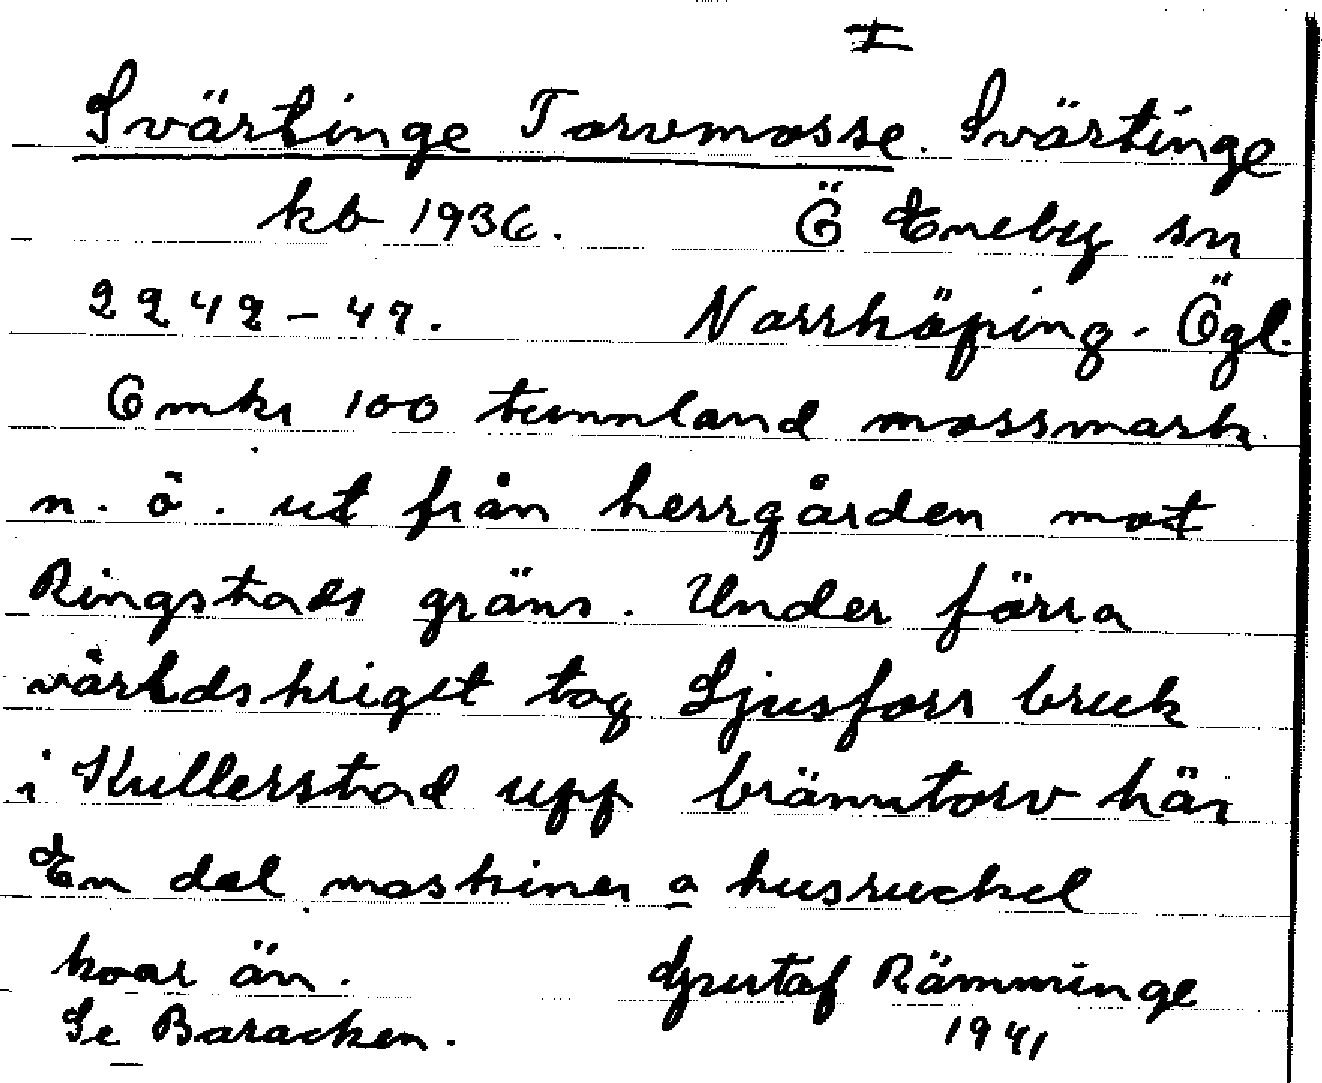 I
Svärtinge Torvmosse. Svärtinge
kb 1936. Ö Eneby sn
2242-47. Norrköping. Ögl.
Omkr 100 tunnland mossmark
n. ö. ut från herrgården mot
Ringstads gräns. Under förra
världskriget tog Ljusfors bruk
i Kullerstad upp bränntorv här
En del maskiner o husruckel
kvar än. Gustaf Rämminge
Se Baracken. 1941